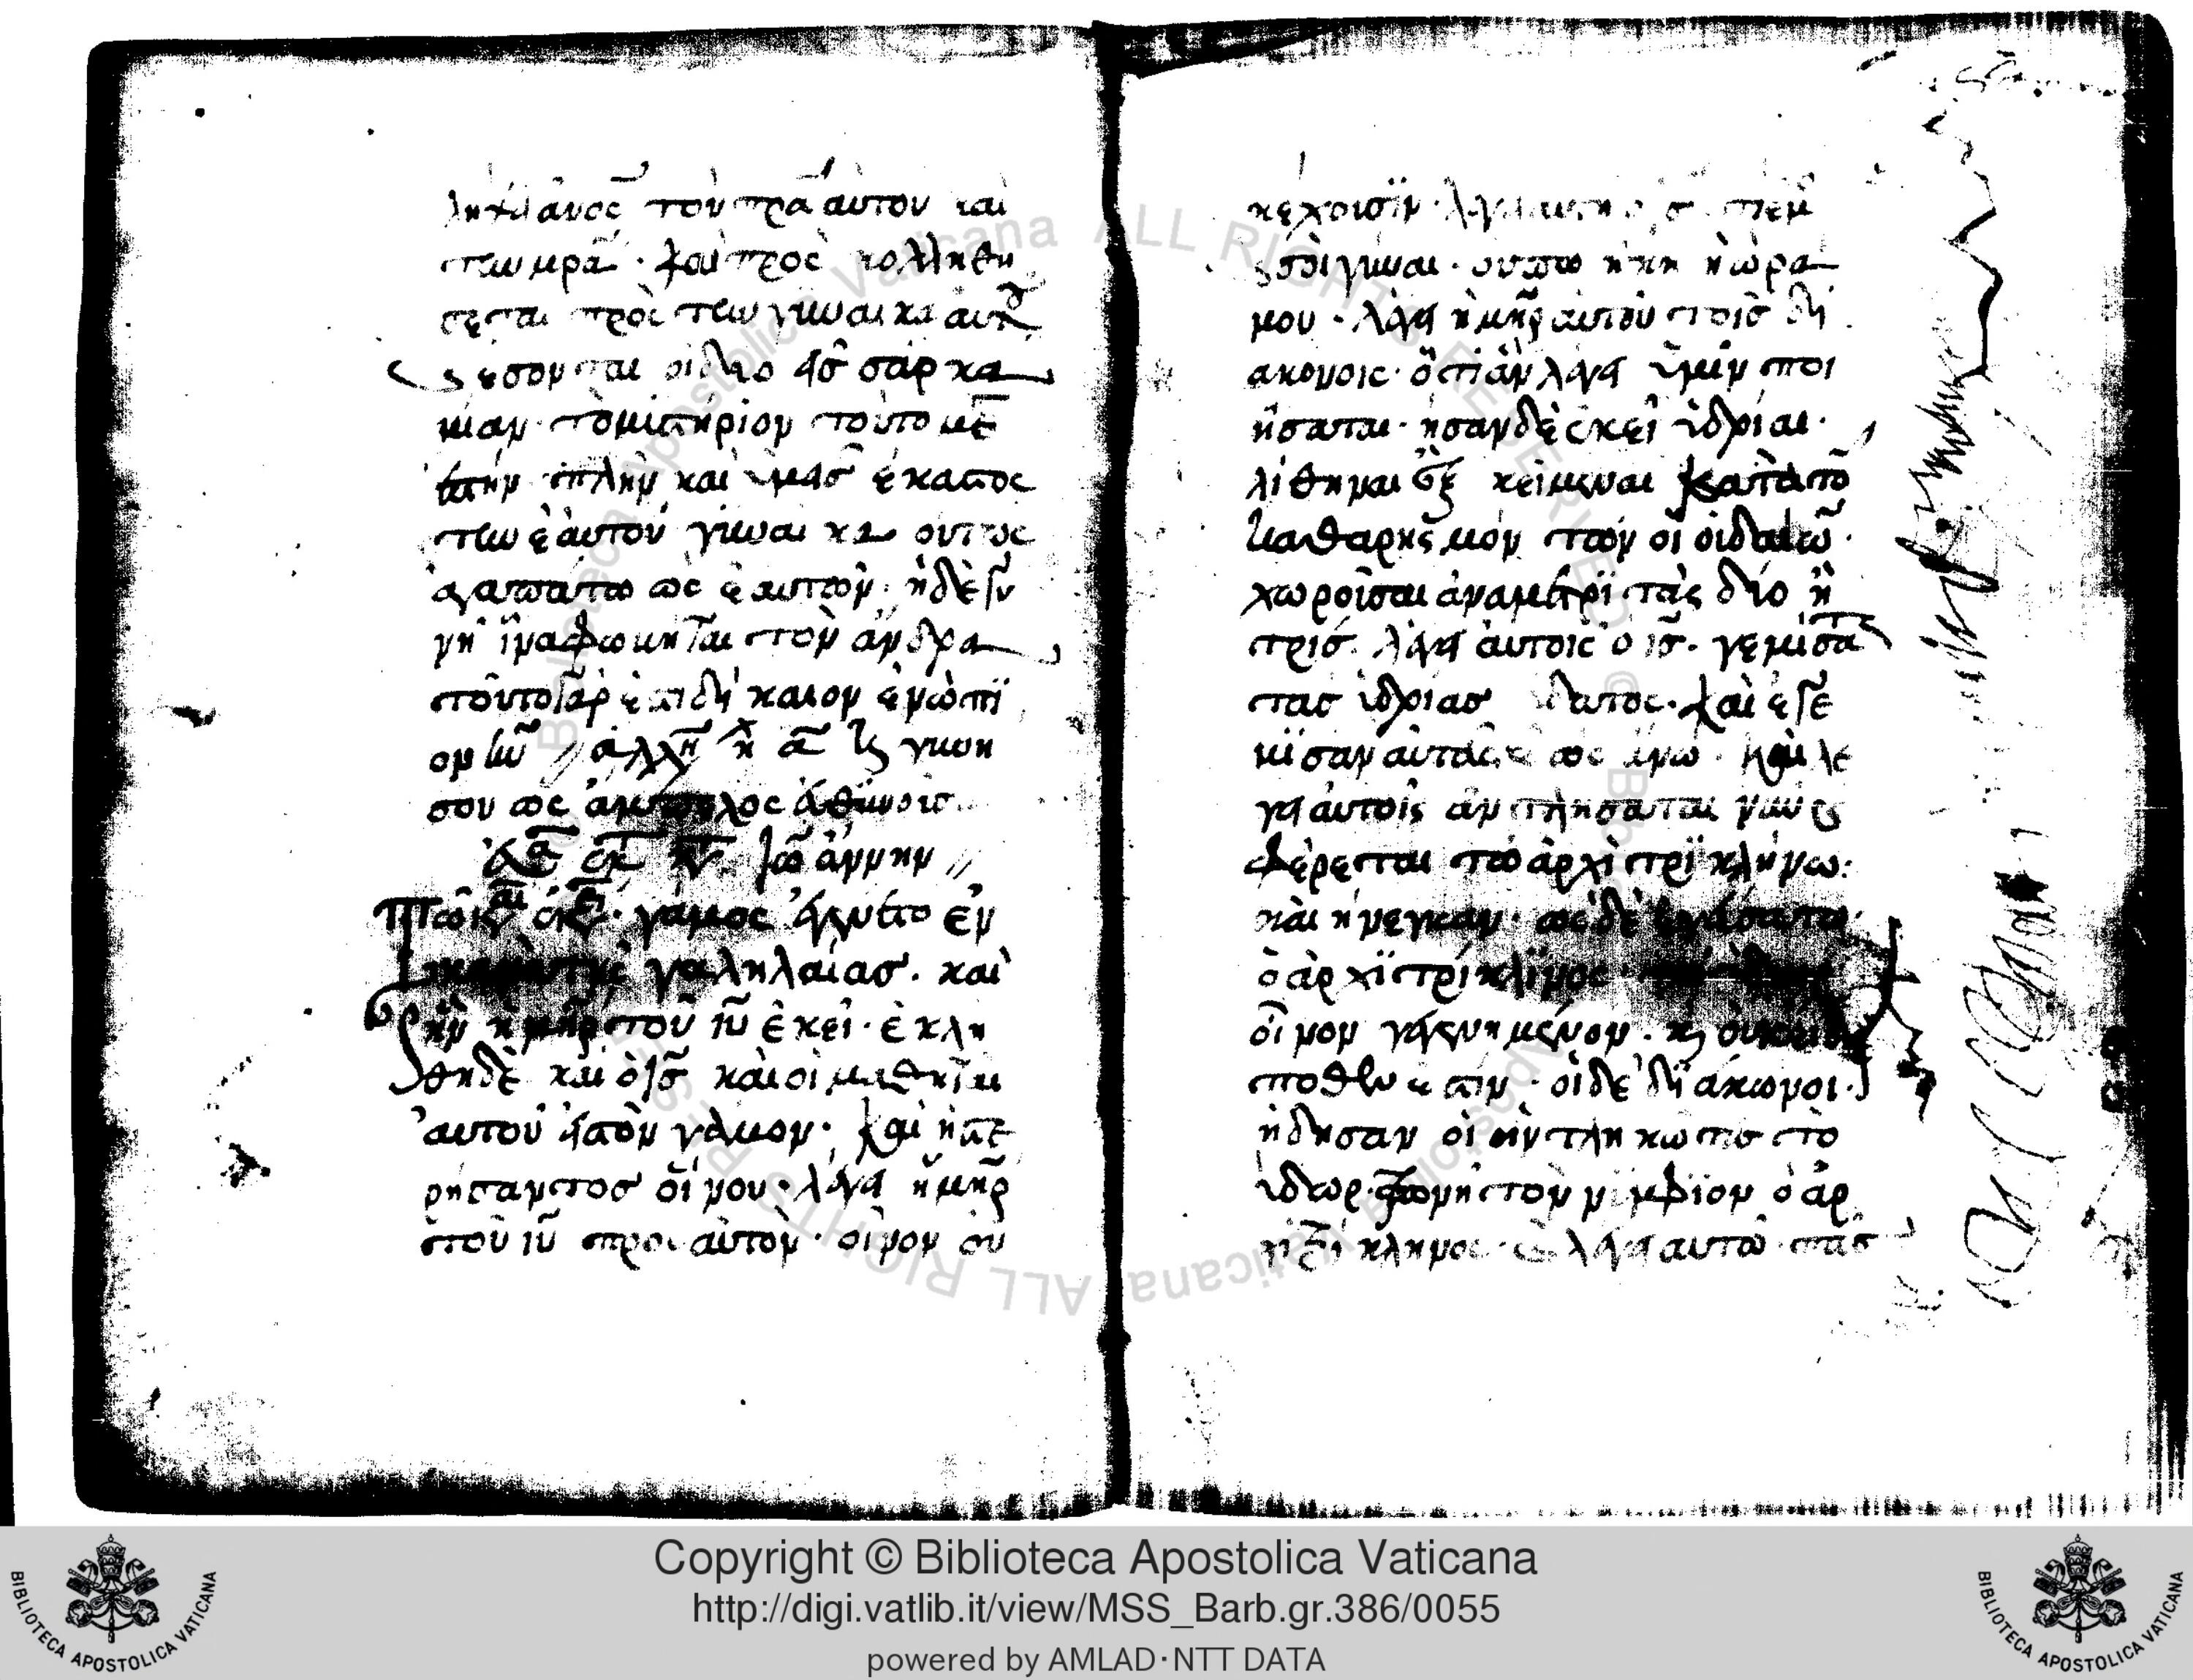 ληψει ανοσ τὸν πρα αυτον και
την μρα · και προσ κολληθη
σεται πρὸς την γυναικα αυτου
ϗ εσονται οι διο εισ σαρκα
μιαν · το μιστηριον τουτο με
εστην · πλὴν και υμασ εκαστος
την ἑαυτου γυναικα ουτως
αγαπατω ως εαυτον · ηδε γυ
νη ινα φωβηται τον ανδρα
τουτο γαρ εστι δηκαιον ενωπϊ
ον κυ // αλλη
σου ως αμπελος εὐθηνοισ
ευα εκ του κτ ιω αννην //
Τω κερω εκει · γαμος εγενετο εν
κανα της γαληλαίασ · και
ην η μηρ του ιυ ἐκει · ἐκλη
θη δὲ και ὁ ισ και οι μαθηται
αυτου εις τον γαμον · και ηστε
ρησαντοσ οἴνου · λεγει η μηρ
του ιυ προς αυτον · οινον ου
κ εχοισιν · λεγει αυτη ο ισ τι εμ
ϗ σοι γυναι · ουπω ηκη η ωρα
μου · λεγει η μηρ αυτου τοισ δι
ακονοις · ὅτι αν λεγει υμιν ποι
ησαται · ησαν δε εκει υδριαι ·
λιθηναι εξ κειμεναι κατα το
καθαρησμον των οι οιδαιω ·
χωροισαι ανα μετρϊ τας διο η
τρισ · λεγει αυτοις ο ισ · γεμισα
τασ υδριασ υδατος · και εγε
μισαν αυτας ε ως ανω · και λε
γει αυτοις αντλησαται νυν ϗ
φερεται τω αρχι τρϊκληνω ·
και ηνεγκαν · ως δε εγευσατω
ὁ αρχϊτρικλϊνος · το υδωρ
οι νον γεγενημενον · ϗ ουκ ειδη
ποθεν εστιν · οι δε διακωνοι ·
ηδησαν οι ηντληκωτεσ το
υδωρ · φωνη τον νιμφϊον ο αρ
χιτρι κληνος · ϗ λεγει αυτω · πασ
Copyright © Biblioteca Apostolica Vaticana
http://digi.vatlib.it/view/MSS_Barb.gr.386/0055
powered by AMLAD·NTT DATA